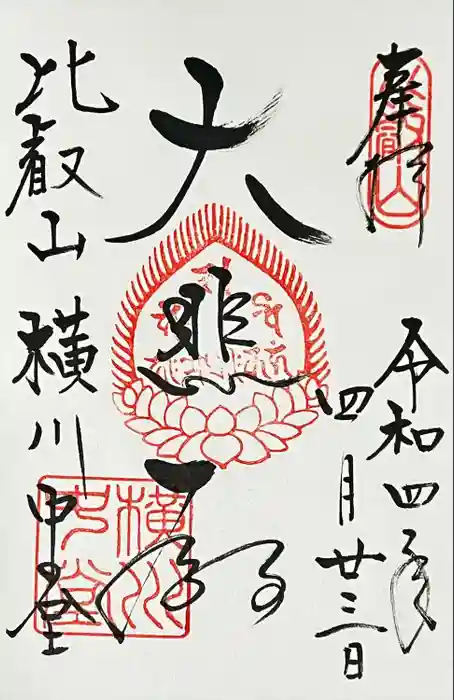 奉拝
令和四年
四月廿三日
大悲殿
比叡山 横川中堂
比叡山
横川中堂